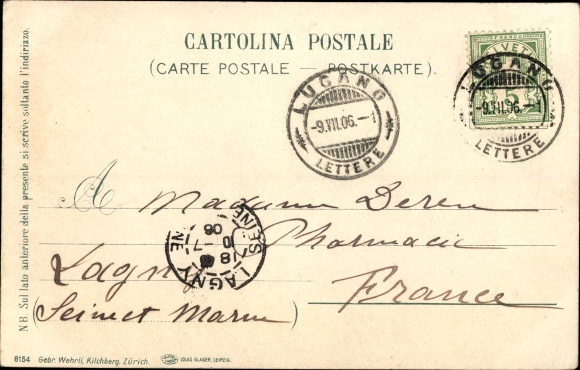 CARTOLINA POSTALE
(CARTE POSTALE — POSTKARTE).
NB. Sul lato anteriore della presente si scrive soltanto l'indirizzo.
FRANCO
HELVETIA
5
LUGANO
-9.VII.06.-1
LETTERE
LUGANO
-9.VII.06.-1
LETTERE
A Madame Deren
Pharmacie
Lagny
France
(Seine et Marne)
LAGNY
SEINE
18
10 - 7
06
6154 Gebr. Wehrli, Kilchberg, Zürich.
LOUIS GLASER, LEIPZIG.